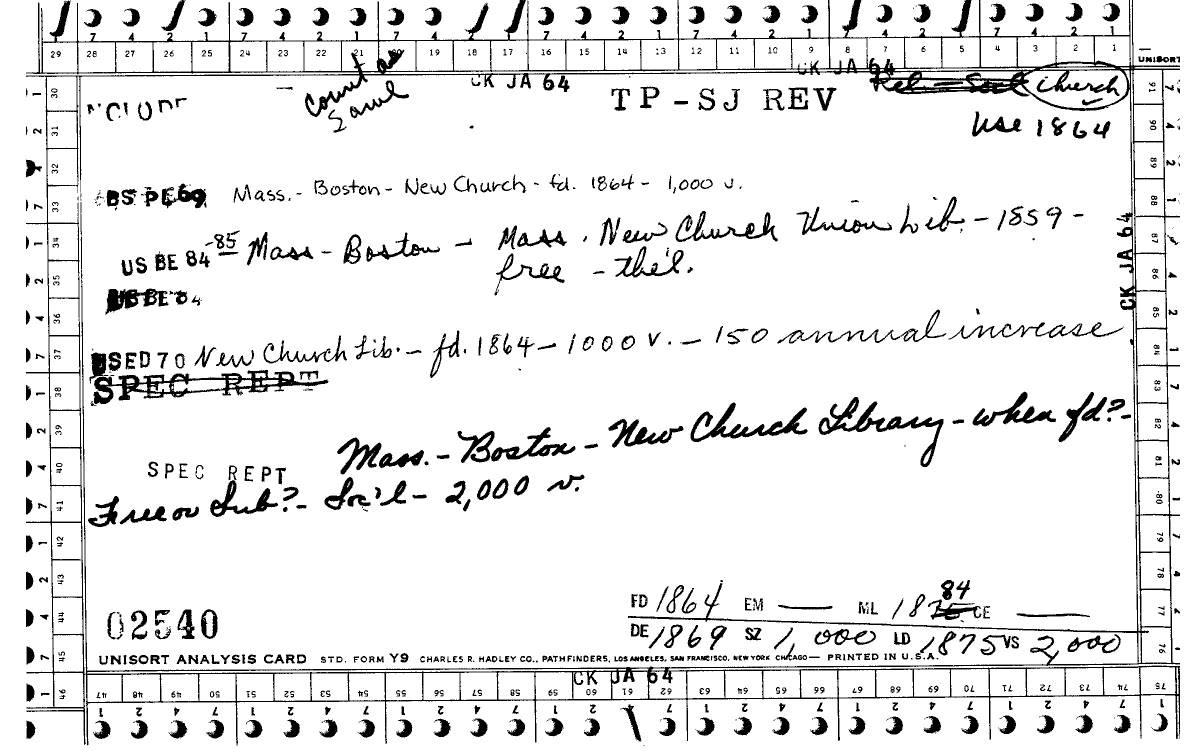 7 4 2 1 7 4 2 1 7 4 2 1 7 4 2 1 7 4 2 1 7 4 2 1 7 4 2 1
29 28 27 26 25 24 23 22 21 20 19 18 17 16 15 14 13 12 11 10 9 8 7 6 5 4 3 2 1
UNISORT
CK JA 64
CK JA 64
count as
Saml
TP-SJ REV
Rel. - Soc'l Church
Use 1864
BS PE69 Mass. - Boston - New Church - fd. 1864 - 1,000 v.
US BE 84-85 Mass - Boston - Mass. New Church Union Lib. - 1859 -
free - the'l.
US BE 84
CK JA 64
USED70 New Church Lib. - fd. 1864 - 1000 v. - 150 annual increase
SPEC REPT
SPEC REPT Mass. - Boston - New Church Library - when fd? -
Free or Sub? - Soc'l - 2,000 v.
02540
FD 1864 EM — ML 1875 84 CE —
DE 1869 SZ 1,000 LD 1875 VS 2,000
UNISORT ANALYSIS CARD STD. FORM Y9 CHARLES R. HADLEY CO., PATHFINDERS, LOS ANGELES, SAN FRANCISCO, NEW YORK CHICAGO — PRINTED IN U.S.A.
CK JA 64
30 31 32 33 34 35 36 37 38 39 40 41 42 43 44 45 46
47 48 49 50 51 52 53 54 55 56 57 58 59 60 61 62 63 64 65 66 67 68 69 70 71 72 73 74 75
91 90 89 88 87 86 85 84 83 82 81 80 79 78 77 76